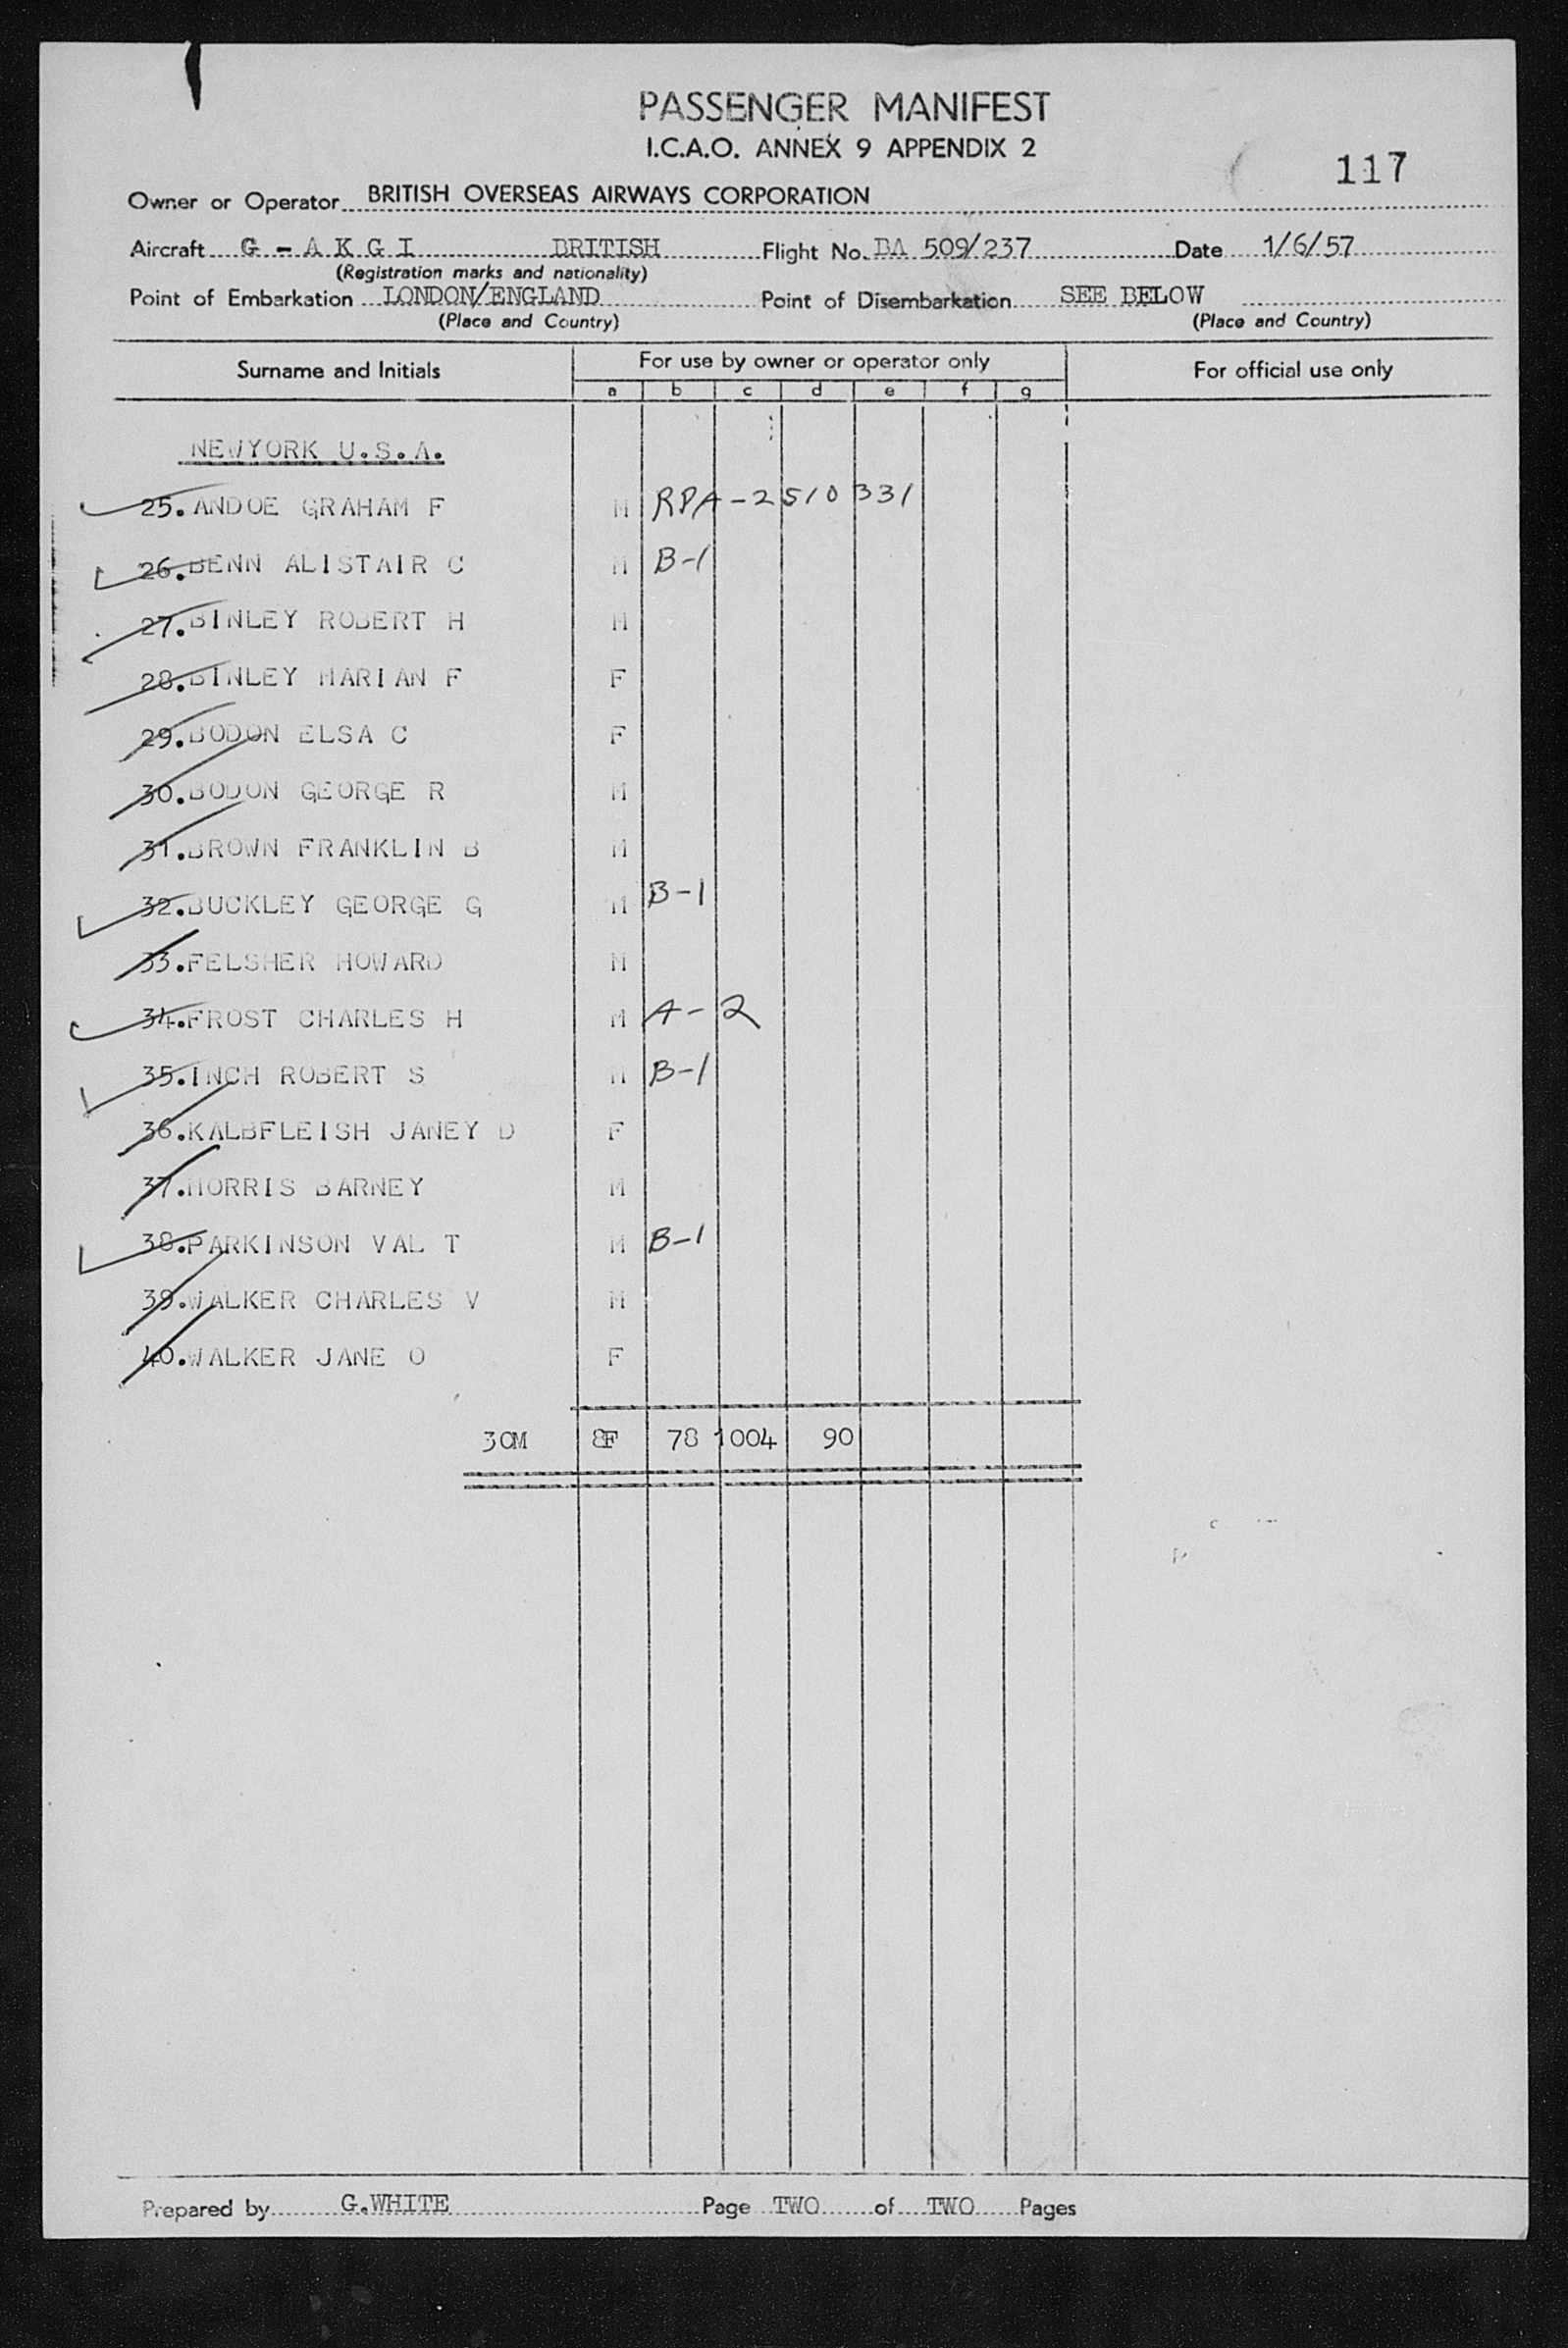 PASSENGER MANIFEST
I.C.A.O. ANNEX 9 APPENDIX 2
117
Owner or Operator BRITISH OVERSEAS AIRWAYS CORPORATION
Aircraft G - A K G I BRITISH Flight No. BA 509/237 Date 1/6/57
(Registration marks and nationality)
Point of Embarkation LONDON/ENGLAND Point of Disembarkation SEE BELOW
(Place and Country) (Place and Country)
Surname and Initials For use by owner or operator only For official use only
a b c d e f g
NEWYORK U.S.A.
25. ANDOE GRAHAM F M RPA-2510331
26. BENN ALISTAIR C M B-1
27. BINLEY ROBERT H M
28. BINLEY MARIAN F F
29. BODON ELSA C F
30. BODON GEORGE R M
31. BROWN FRANKLIN B M
32. BUCKLEY GEORGE G M B-1
33. FELSHER HOWARD M
34. FROST CHARLES H M A-2
35. INCH ROBERT S M B-1
36. KALBFLEISH JANEY D F
37. MORRIS BARNEY M
38. PARKINSON VAL T M B-1
39. WALKER CHARLES V M
40. WALKER JANE O F
30M 8F 78 1004 90
Prepared by G.WHITE Page TWO of TWO Pages